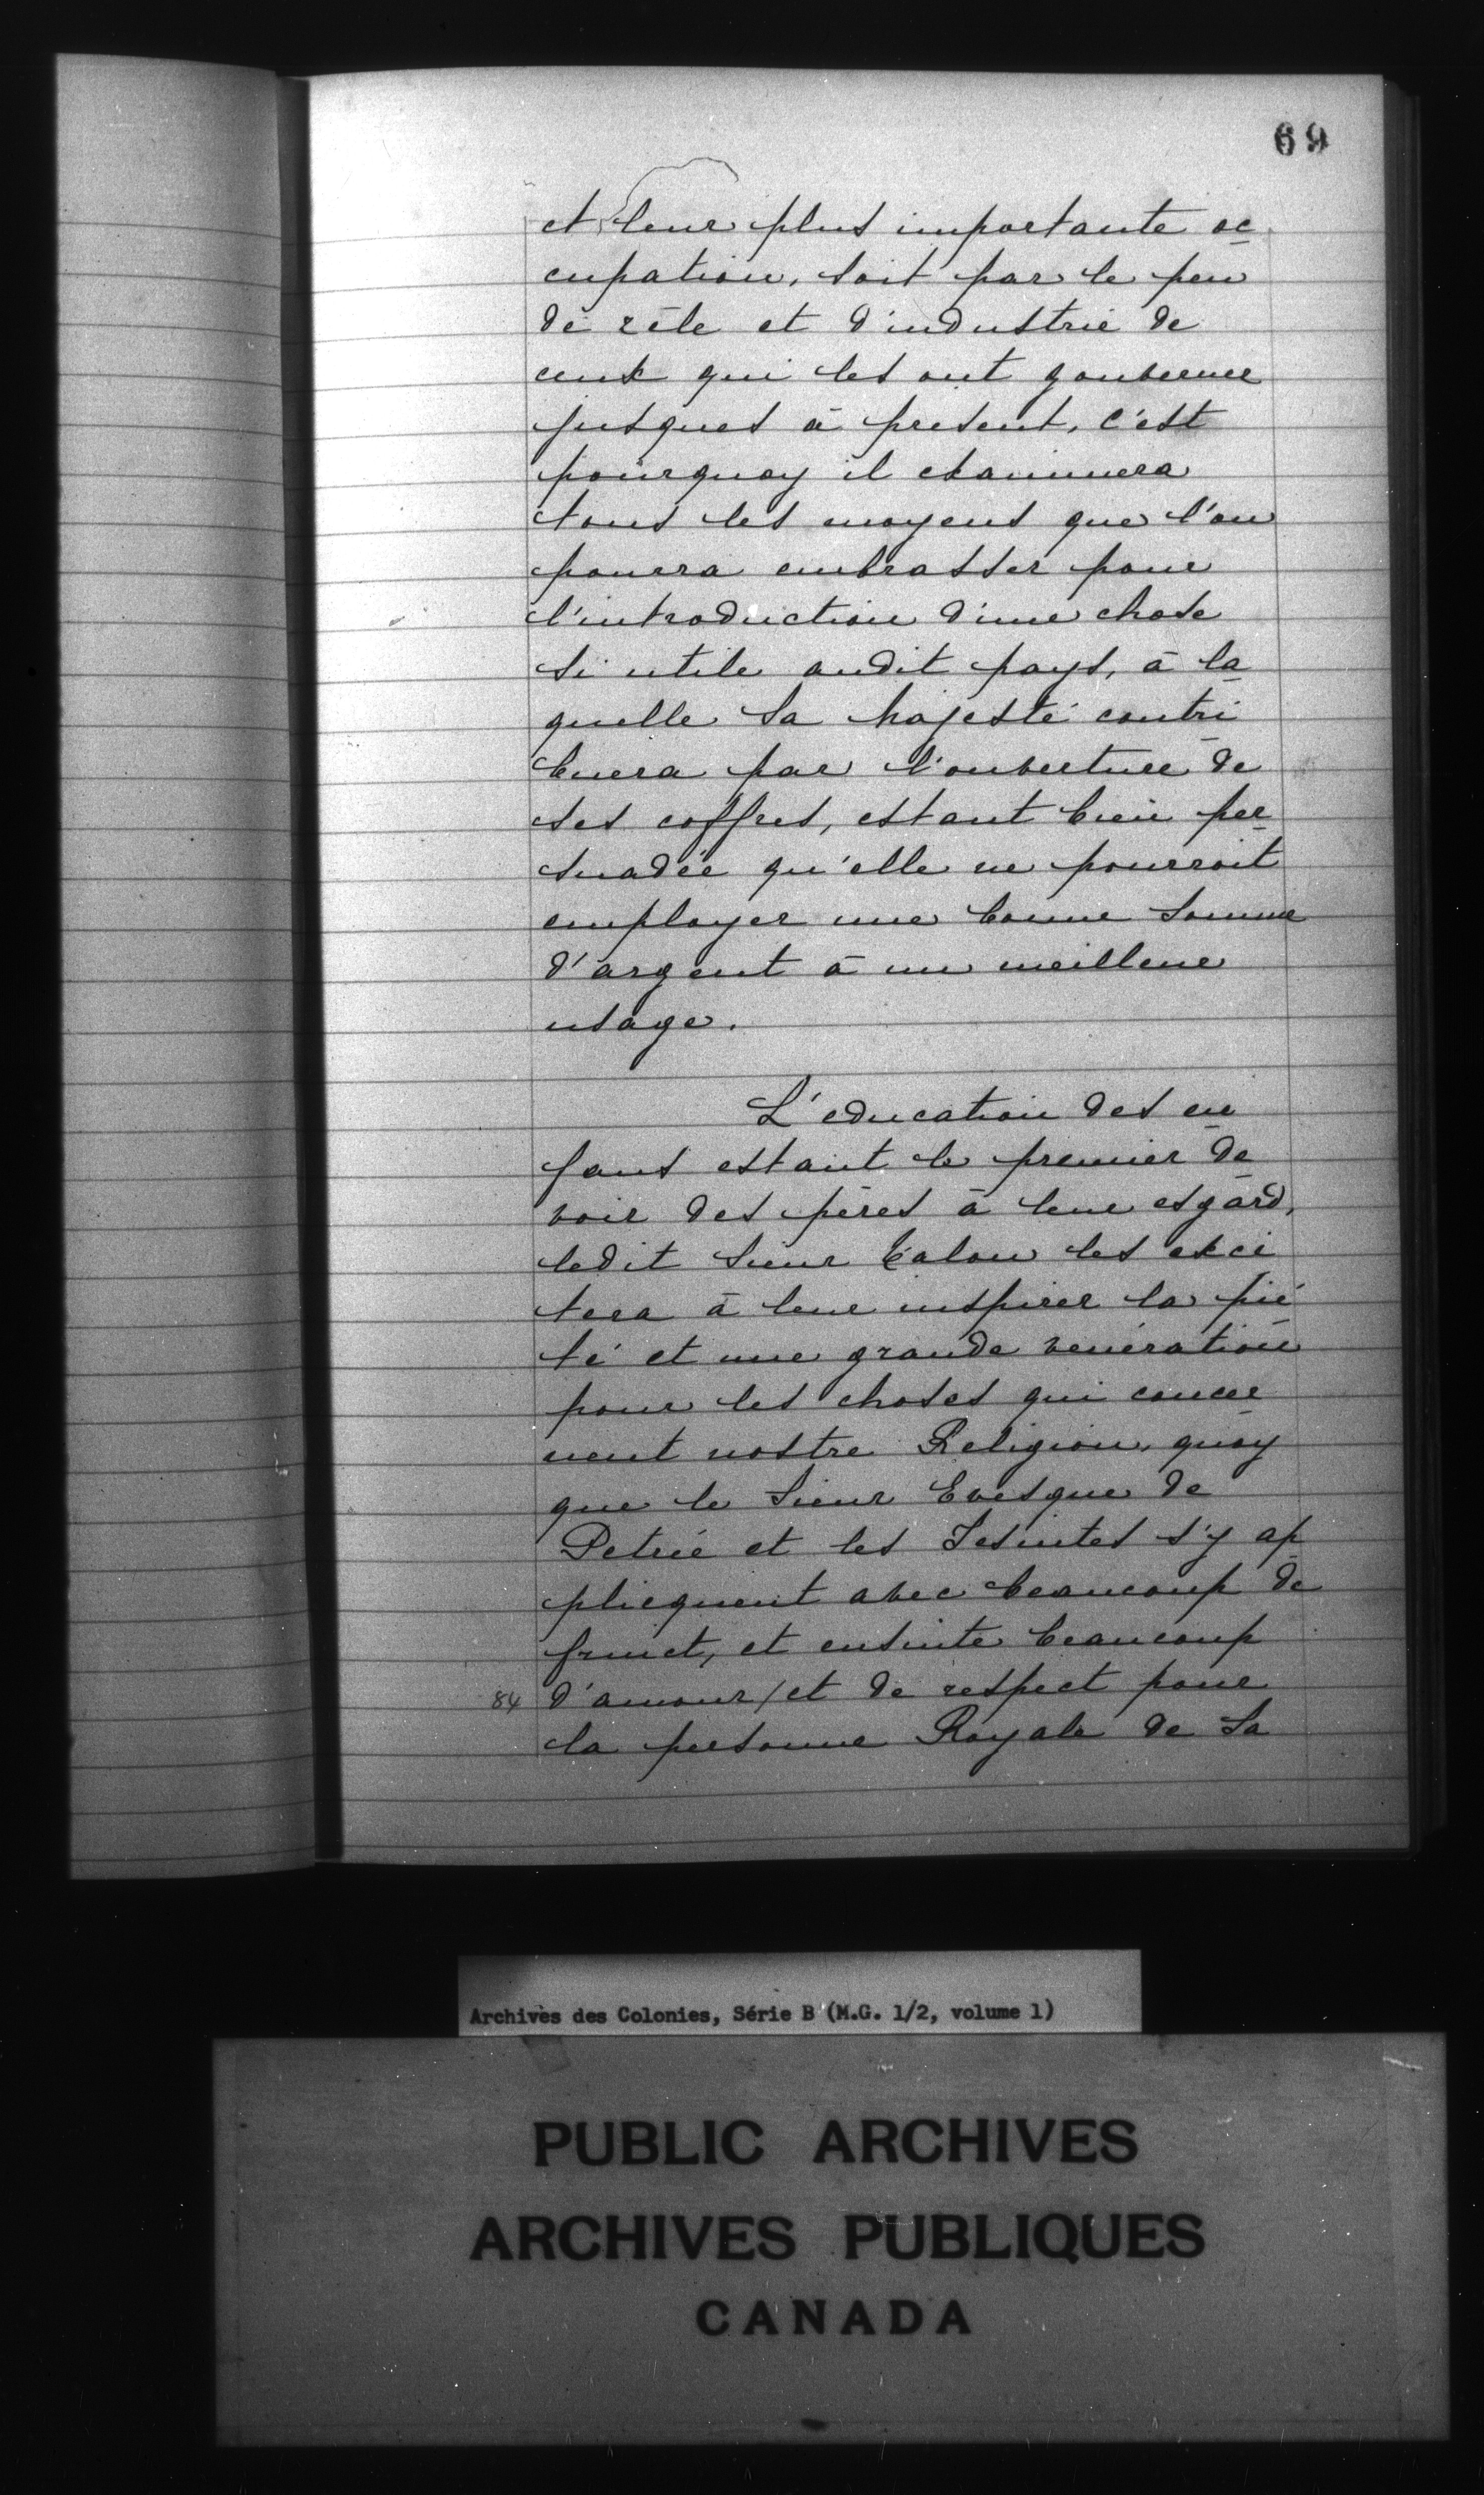 69
et leur plus importante oc
cupation, soit par le peu
de zéle et d'industrie de
ceux qui les ont gouverner
jusques à present, c'est
pourquoy il examinera
tous les moyens que l'on
pourra embrasser pour
l'introduction d'une chose
si utile audit pays, à la
quelle Sa Majesté contri
buera par l'ouverture de
ses coffres, estant bien per
suadée qu'elle ne pourroit
employer une bonne somme
d'argent à un meilleur
usage.
L'education des en
fans estant le premier de
voir des péres à leur esgard,
ledit Sieur Talon les exci
tera à leur inspirer la pié
té et une grande veneration
pour les choses qui concer
nent nostre Religion, quoy
que le Sieur Evesque de
Petrée et les Jesuites s'y ap
plicquent avec beaucoup de
fruict, et ensuite beaucoup
84 d'amour / et de respect pour
la personne Royale de Sa
Archives des Colonies, Série B (M.G. 1/2, volume 1)
PUBLIC ARCHIVES
ARCHIVES PUBLIQUES
CANADA